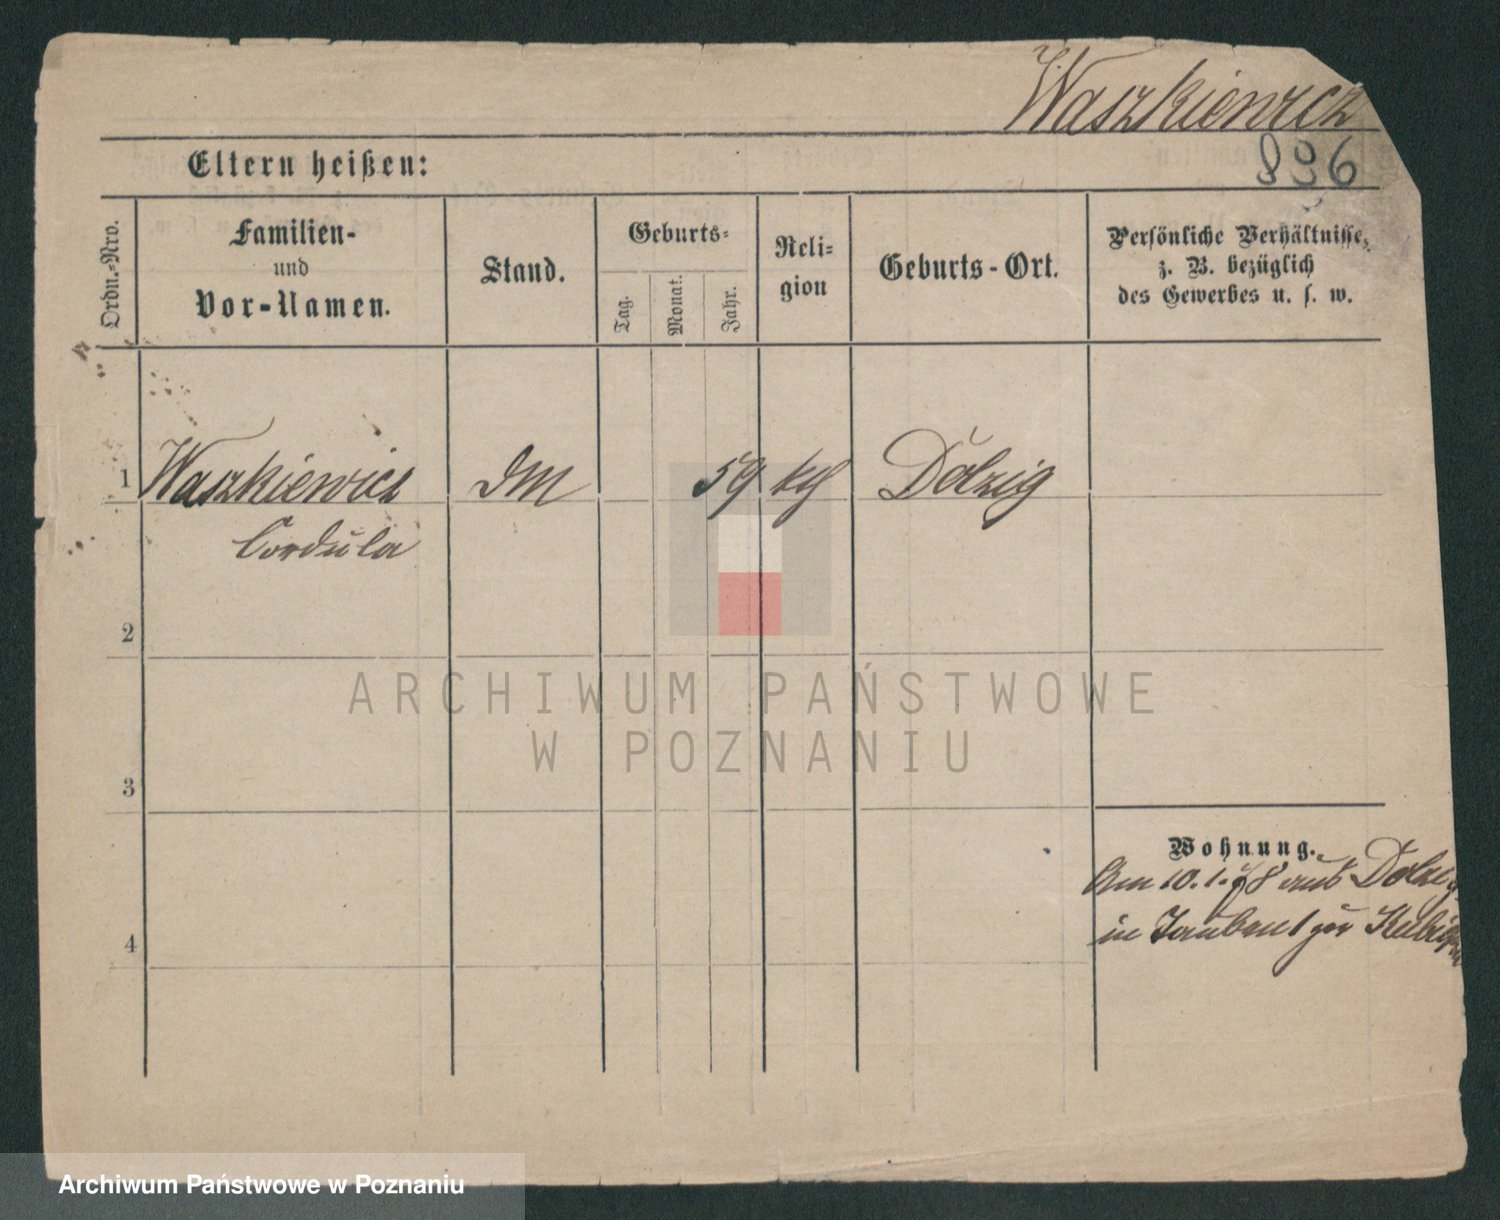 Waszkiewicz
896
Eltern heißen:
Ordn.-Nro.
Familien-
und
Vor-Namen.
Stand.
Geburts-
Tag.
Monat.
Jahr.
Reli-
gion
Geburts-Ort.
Persönliche Verhältnisse,
z. B. bezüglich
des Gewerbes u. s. w.
1 Waszkiewicz DM 59 kth Dolzig
Cordula
2
3
4
Wohnung.
Am 10.1.78 aus Dolzig
in
ARCHIWUM PAŃSTWOWE
W POZNANIU
Archiwum Państwowe w Poznaniu